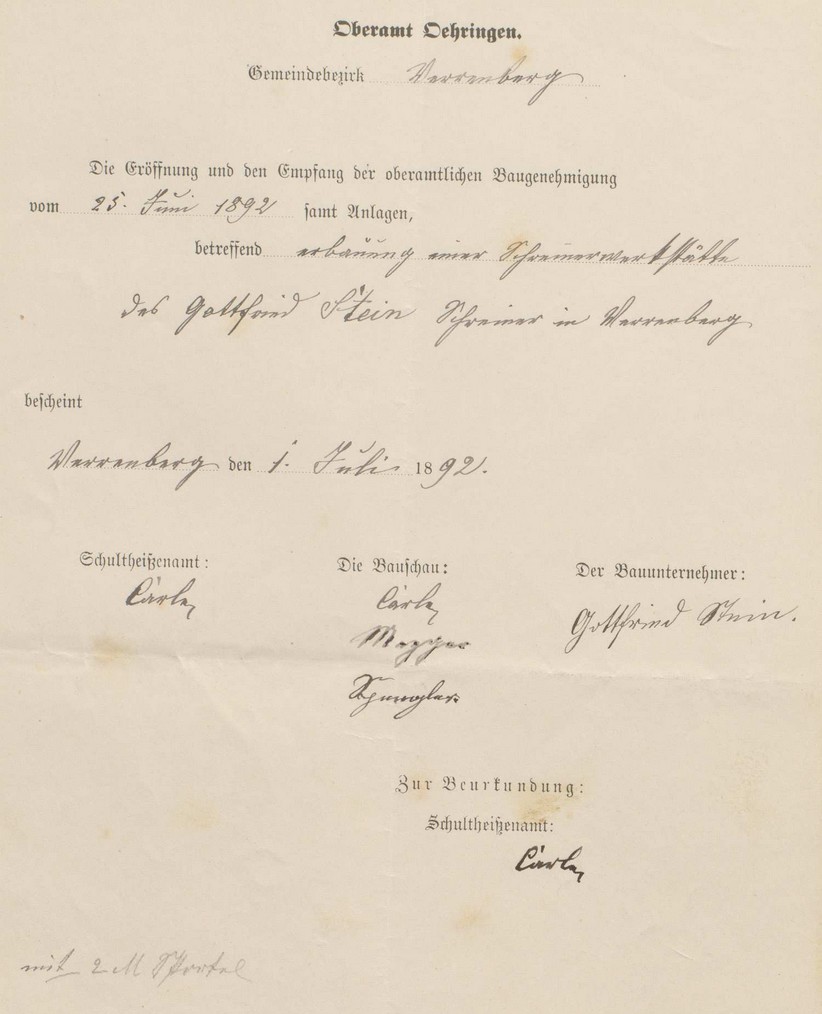 Oberamt Oehringen.
Gemeindebezirk Verrenberg
Die Eröffnung und den Empfang der oberamtlichen Baugenehmigung
vom 25. Juni 1892 samt Anlagen,
betreffend erbauung einer Schreinerwerkstätte
des Gottfried Stein Schreiner in Verrenberg
bescheint
Verrenberg den 1. Juli 1892.
Schultheißenamt: Die Bauschau: Der Bauunternehmer:
Cärle Cärle Gottfried Stein.
Spengler
Zur Beurkundung:
Schultheißenamt:
Cärle
mit 2 M Sportel